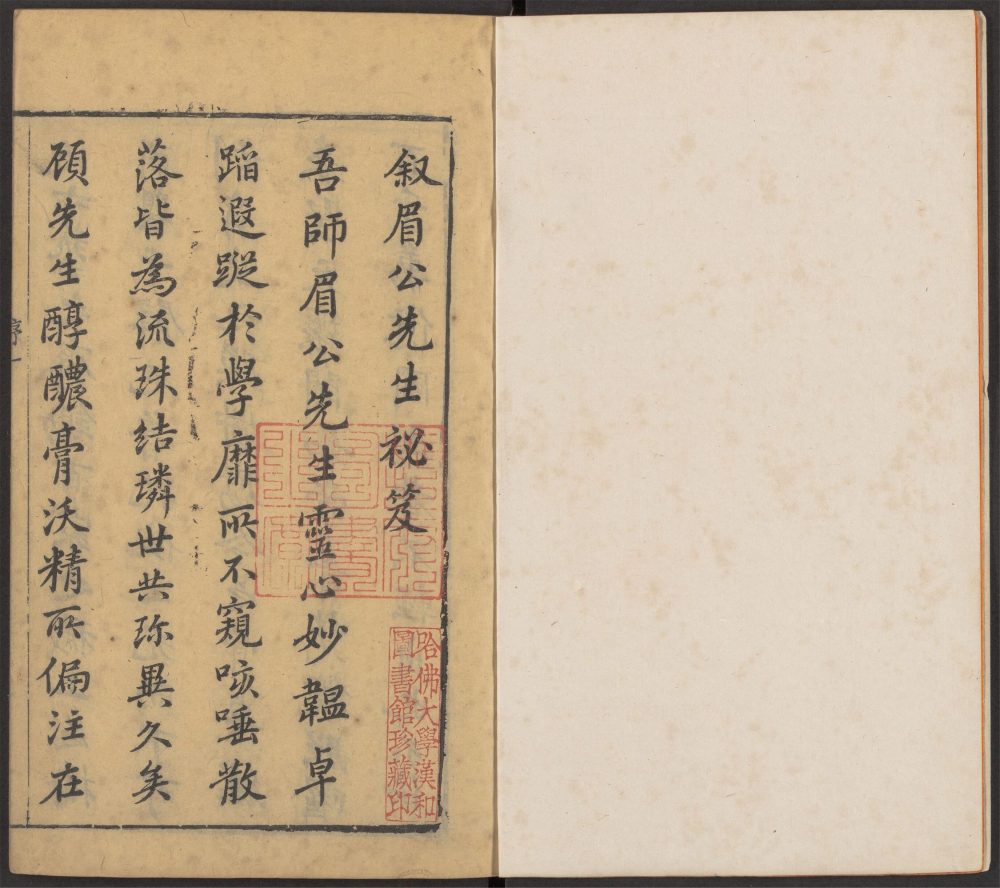 叙眉公先生祕笈
吾師眉公先生靈心妙韞卓
蹈遐蹤於學靡所不窺咳唾散
落皆為流珠結璘世共珎異久矣
顧先生醇醲膏沃精所偏注在
序一
哈佛大學漢和
圖書館珍藏印